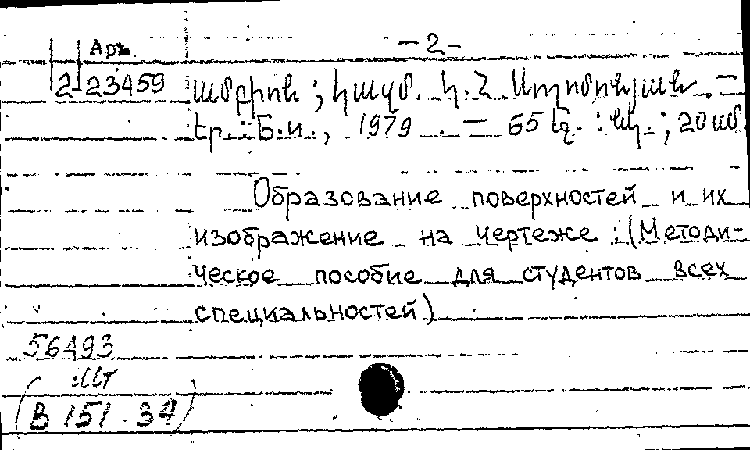 Арм.
- 2 -
2 23459
ամբիոն ; կազմ. Կ. Հ. Սողոմոնյան. -
Եր. : Б.и., 1979. - 65 էջ. : նկ. ; 20 սմ.
Образование поверхностей и их
изображение на чертеже : (Методи-
ческое пособие для студентов всех
специальностей)
56493
(В 151.34)